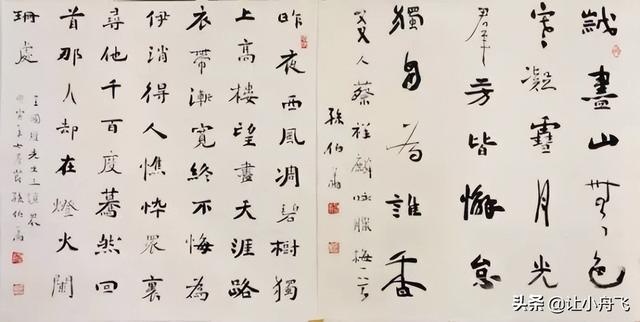 盡山無色
寒凝雪月光
群芳皆懈怠
獨自為誰香
友人蔡祥麟咏臘梅一首
孫伯翔
昨夜西風凋碧樹獨
上高樓望盡天涯路
衣帶漸寬終不悔為
伊消得人憔悴眾裏
尋他千百度驀然回
首那人却在燈火闌
珊處
王國維先生三境界
孫伯翔
头条 @让小舟飞